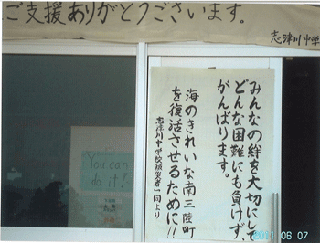 ご支援ありがとうございます。
志津川中学
みんなの絆を大切にして
どんな困難にも負けず、
がんばります。
海のきれいな南三陸町
を復活させるために!!
志津川中学校
一同より
You can
do it!
2011 06 07